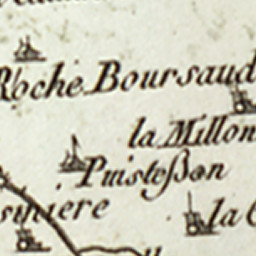 Roche Boursaud
la Millon
Puisteßon
siniere
la